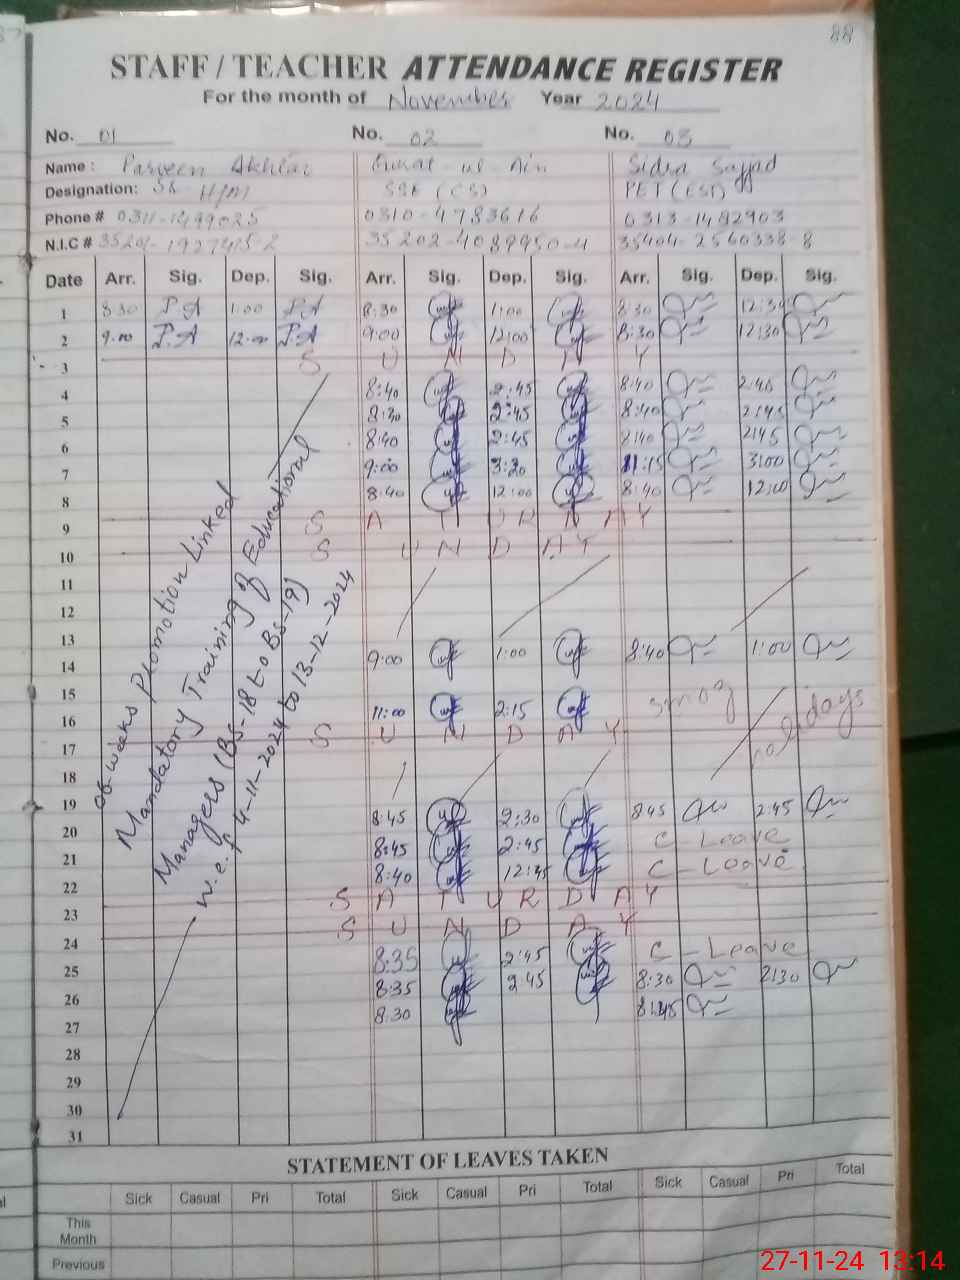 88
STAFF / TEACHER ATTENDANCE REGISTER
For the month of November Year 2024
No. 01 No. 02 No. 03
Name : Parveen Akhtar Qurat-ul-Ain Sidra Sajjad
Designation: H/M SSE (CS) PET (ESE)
Phone # 0311-1499025 0310-4783616 0313-1482903
N.I.C # 35202-4089950-4 35404-2560338-8
Date Arr. Sig. Dep. Sig. Arr. Sig. Dep. Sig. Arr. Sig. Dep. Sig.
1 8:30 P.A 1:00 P.A 8:30 1:00 8:30 12:30
2 9:00 P.A 12:00 P.A 9:00 12:00 8:30 12:30
3 S U N D A Y
4 8:40 2:45 8:40 2:45
5 8:30 2:45 8:40 2:45
6 8:40 2:45 8:40 2:45
7 9:00 3:20 11:15 3:00
8 8:40 12:00 8:40 12:00
9 S A T U R D A Y
10 S U N D A Y
11
12
13
14 9:00 1:00 8:40 1:00
15
16 11:00 2:15 smog
17 S U N D A Y holidays
18
19
20 8:45 2:30 8:45 2:45
21 8:45 2:45 C-Leave
22 8:40 12:45 C-Leave
23 S A T U R D A Y
24 S U N D A Y
25 8:35 2:45 C-Leave
26 8:35 2:45 8:30 2:30
27 8:30 8:45
28
29
30
31
06-weeks Promotion Linked
Mandatory Training of Educational
Managers (BS-18 to BS-19)
w.e.f 4-11-2024 to 13-12-2024
STATEMENT OF LEAVES TAKEN
Sick Casual Pri Total Sick Casual Pri Total Sick Casual Pri Total
This
Month
Previous
27-11-24 13:14